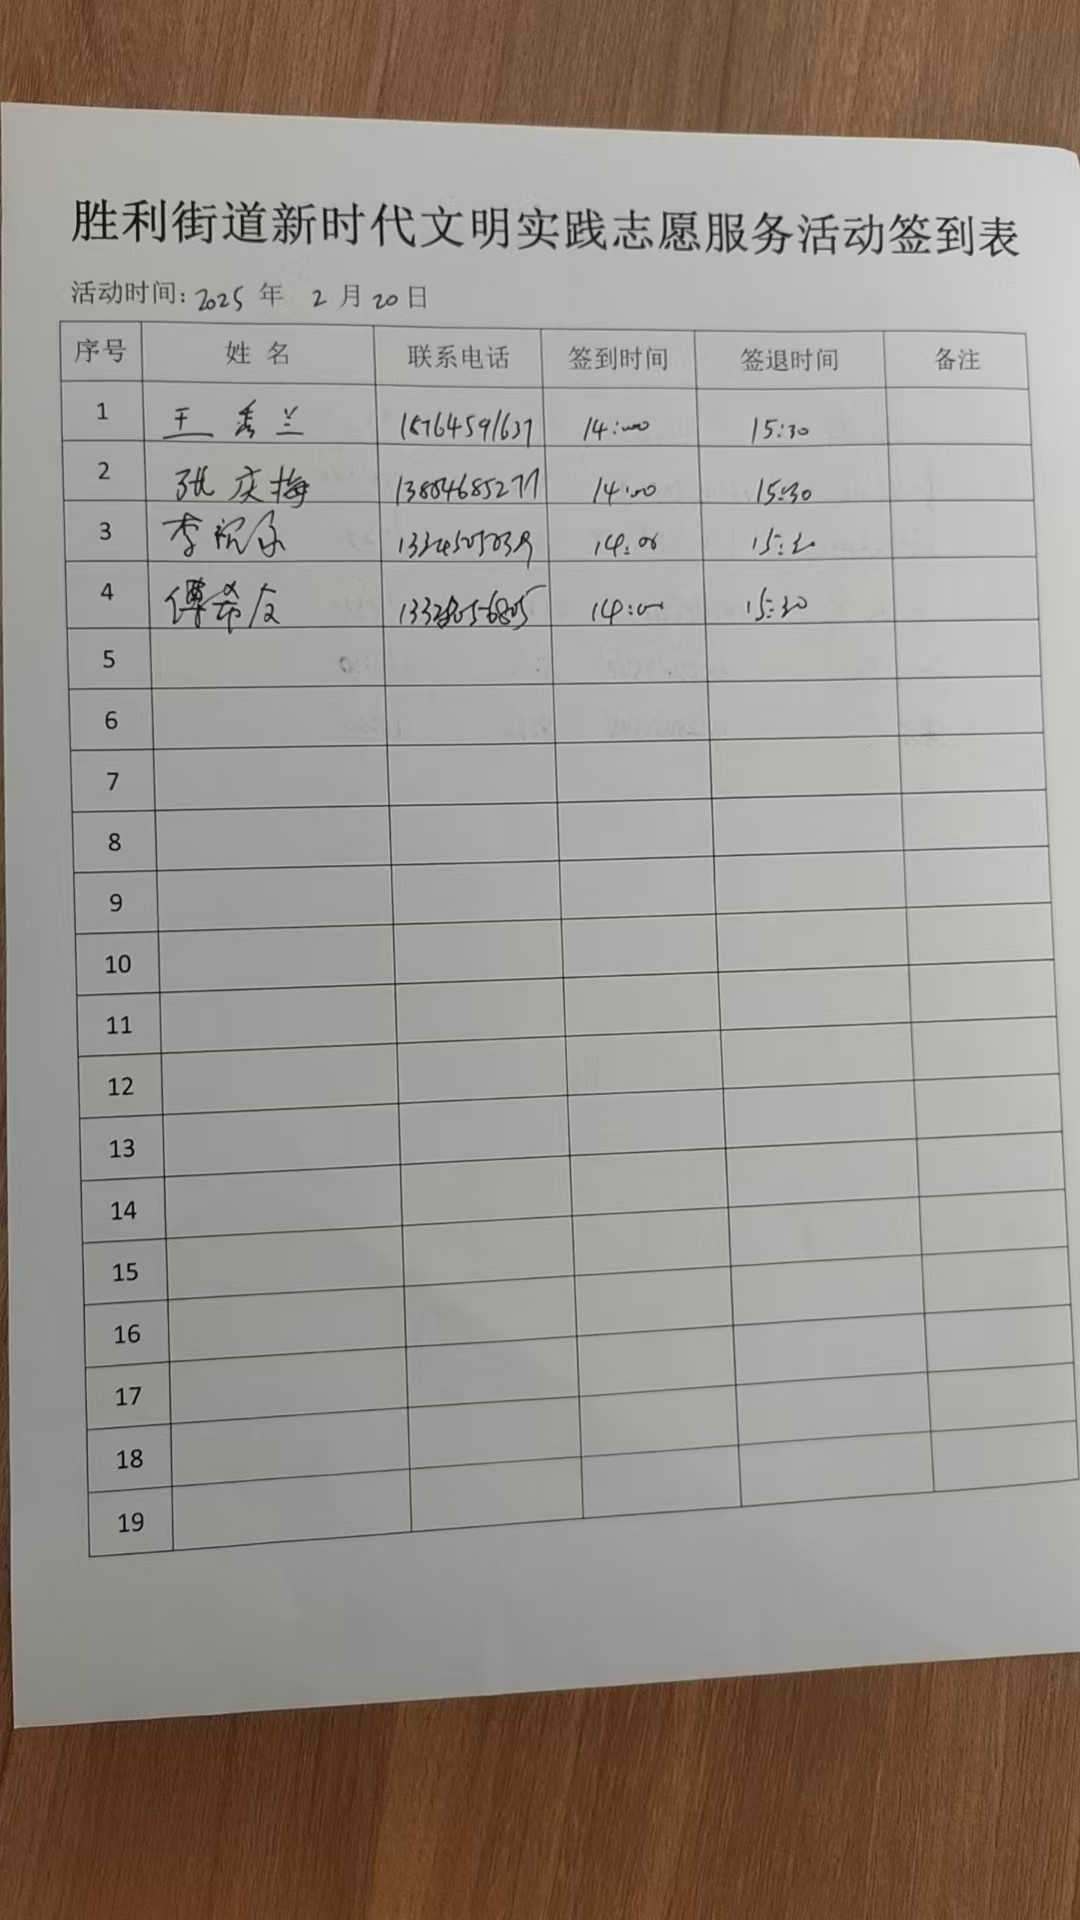 胜利街道新时代文明实践志愿服务活动签到表
活动时间: 2025 年 2 月 20 日
序号 姓 名 联系电话 签到时间 签退时间 备注
1 王秀兰 14:00 15:30
2 张庆梅 13804685277 14:00 15:30
3 李 14:00 15:30
4 傅希友 14:00 15:30
5
6
7
8
9
10
11
12
13
14
15
16
17
18
19